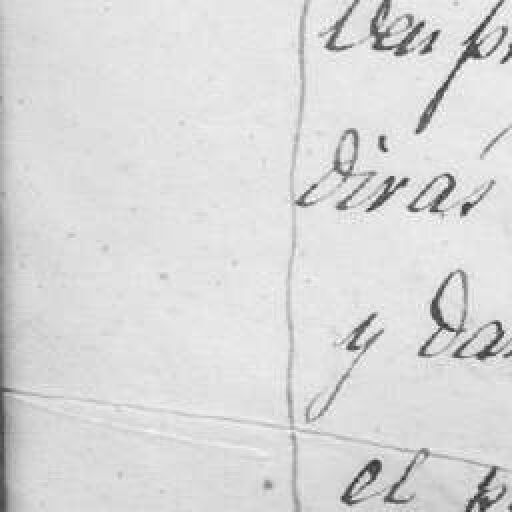 Ven p
diras
y da
el p